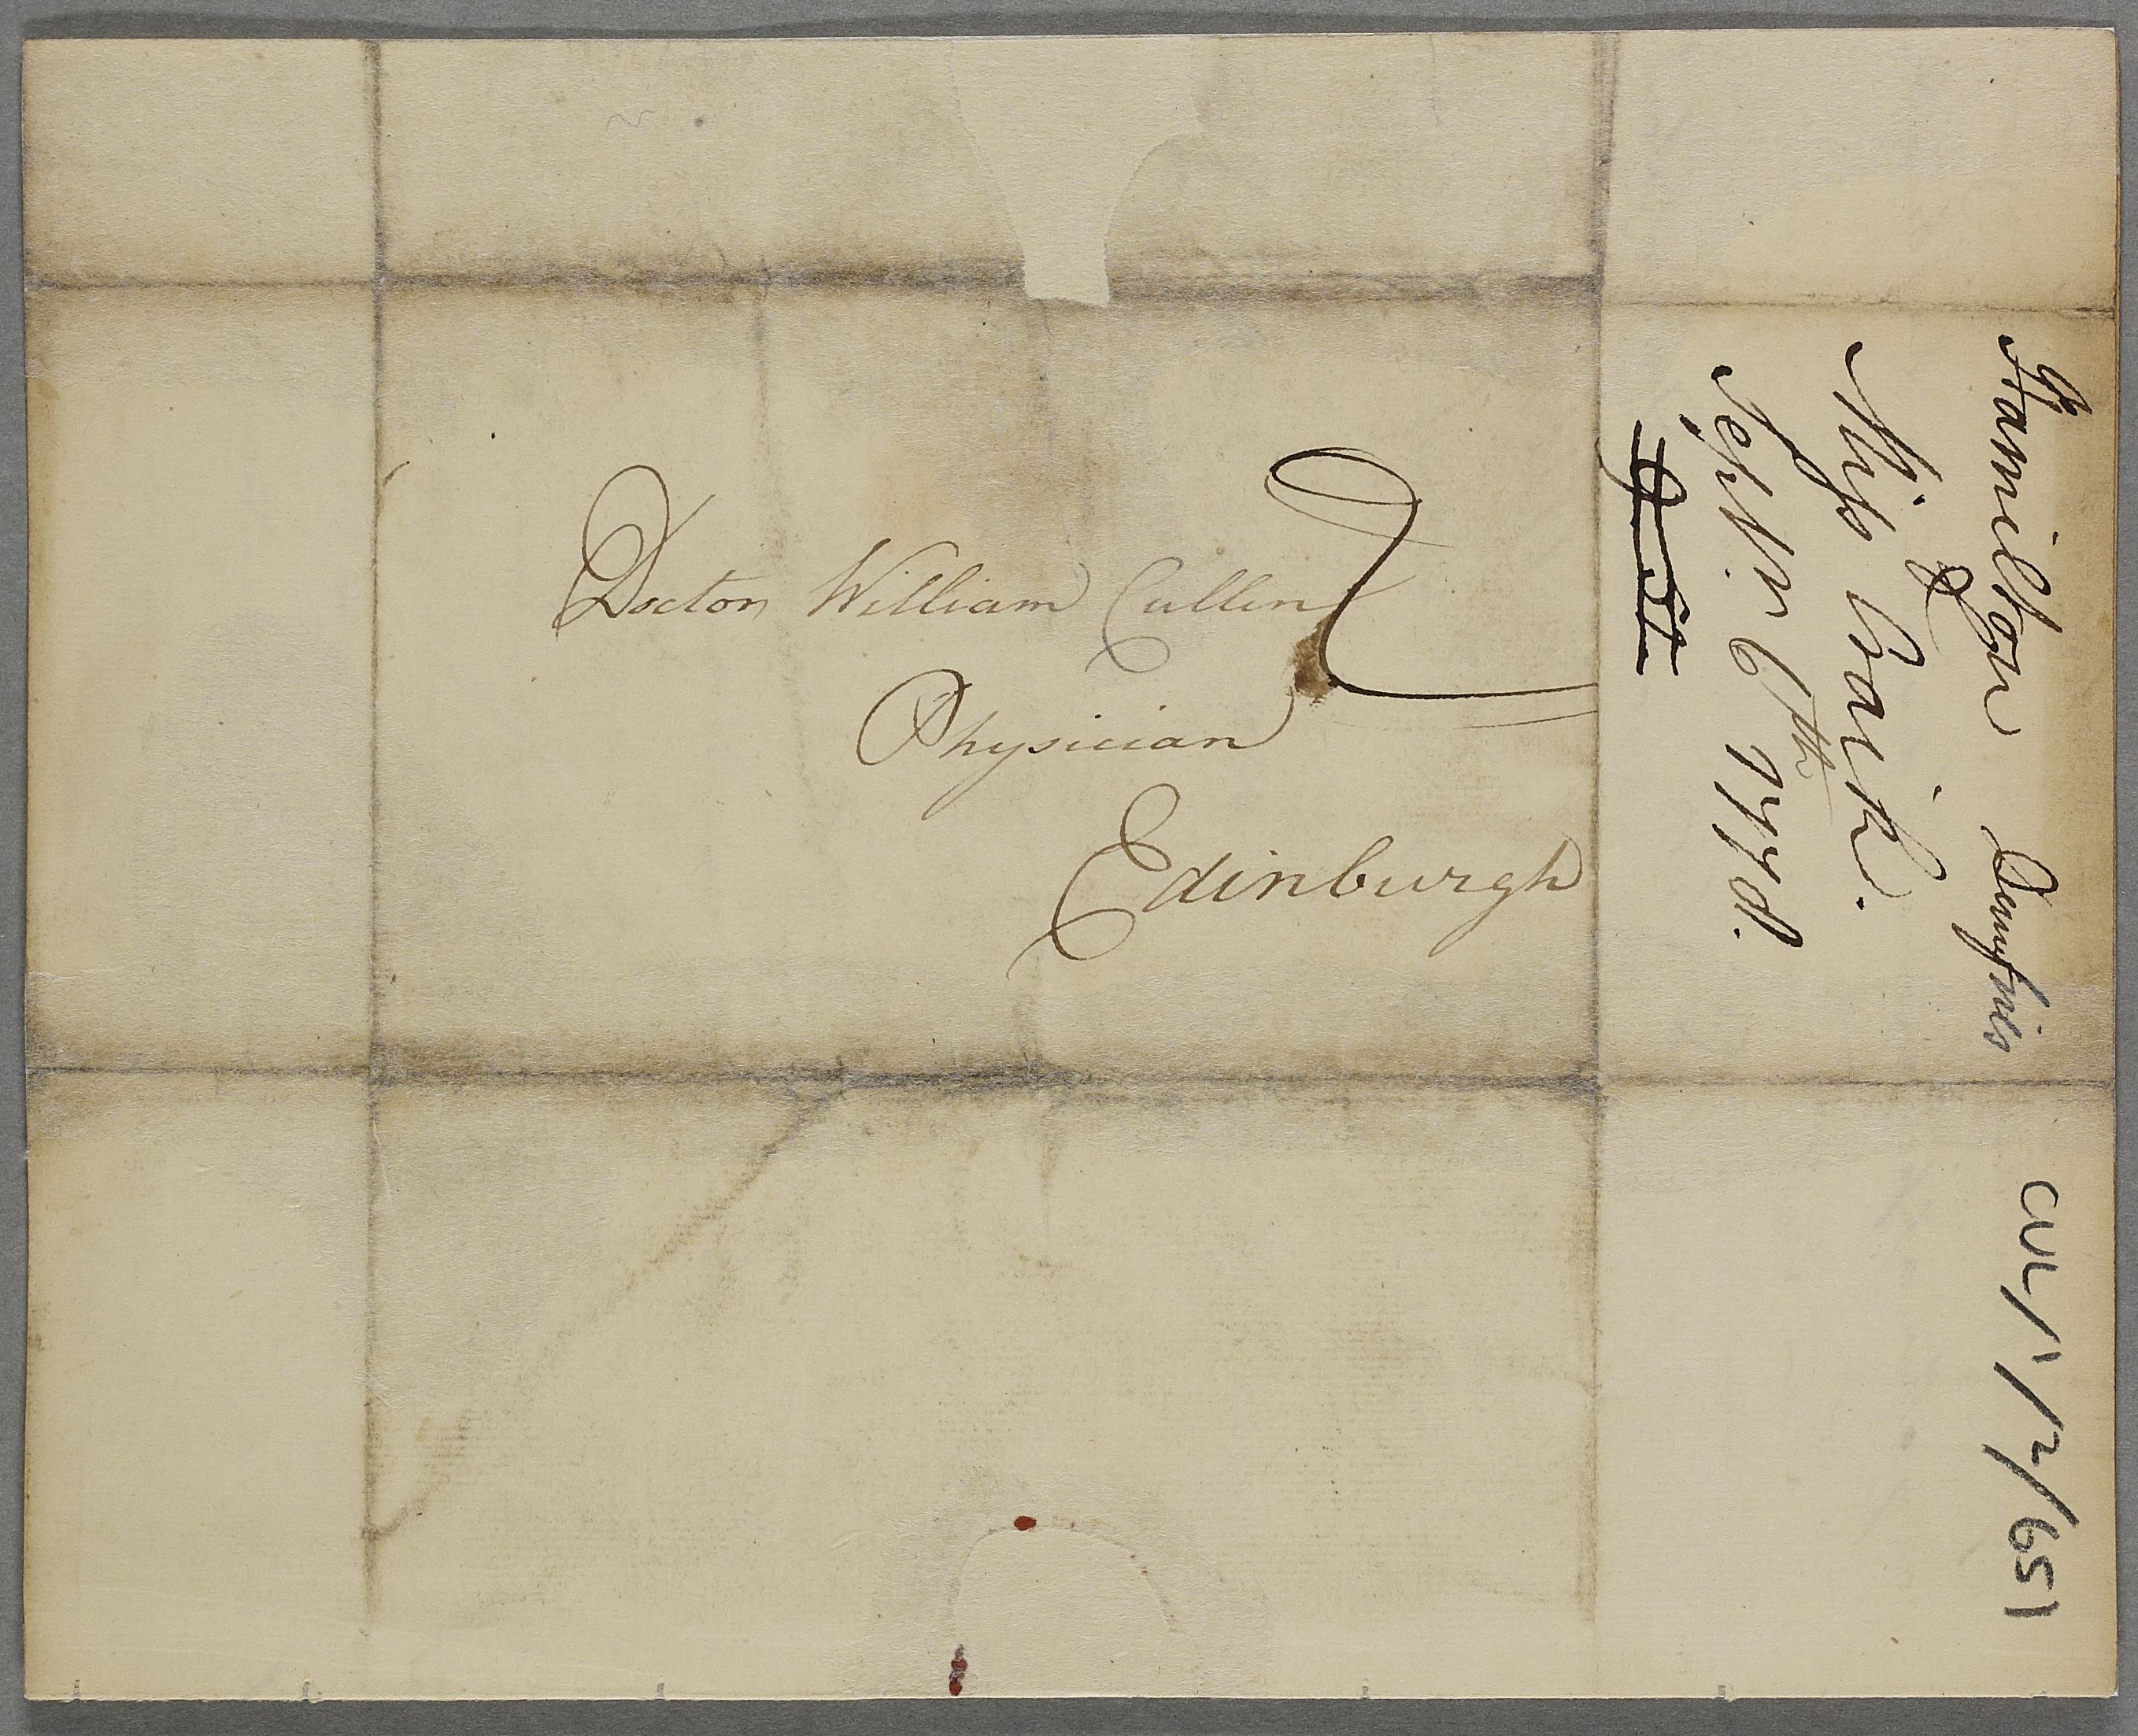 2
Doctor William Cullen
Physician
Edinburgh
Hamilton Dumfries
of
Miss Craik.
Septr. 6th 1778.
CUL/1/2/651